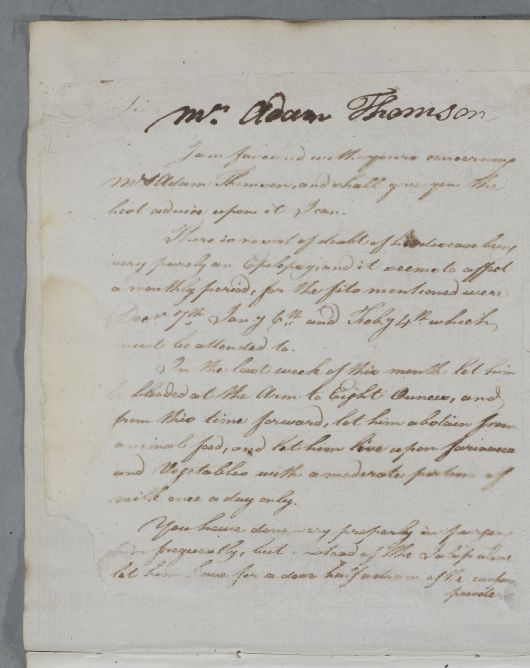 Mr. Adam Thomson
I am favoured with yours concerning
Mr Adam Thomson, and shall give you the
best advice upon it I can.
There is no sort of doubt of his disease being
very purely an Epilepsy, and it seems to affect
a monthly period, for the fits mentioned were
Decr. 17th. Jany 6th. and Feby 4th which
must be attended to.
In the last week of this month let him
be blooded at the Arm to Eight Ounces, and
from this time forward, let him abstain from
animal food, and let him live upon farinacea
and Vegetables with a moderate portion of
milk once a day only.
You have done very properly in purging
him frequently, but instead of the Jalap alone
let him have for a dose half a dram of the